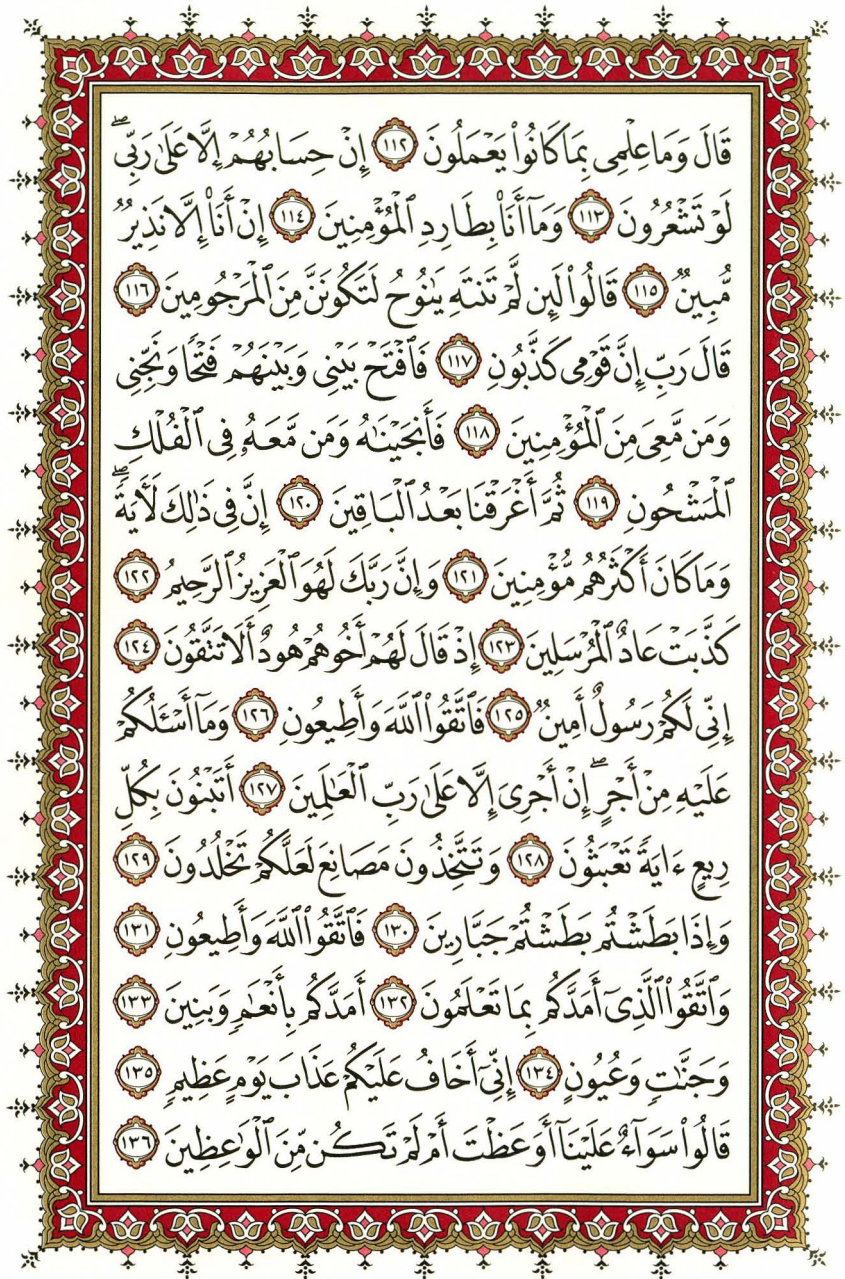 قَالَ وَمَا عِلْمِى بِمَا كَانُوا۟ يَعْمَلُونَ ١١٢ إِنْ حِسَابُهُمْ إِلَّا عَلَىٰ رَبِّى ۖ
لَوْ تَشْعُرُونَ ١١٣ وَمَآ أَنَا۠ بِطَارِدِ ٱلْمُؤْمِنِينَ ١١٤ إِنْ أَنَا۠ إِلَّا نَذِيرٌ
مُّبِينٌ ١١٥ قَالُوا۟ لَئِن لَّمْ تَنتَهِ يَـٰنُوحُ لَتَكُونَنَّ مِنَ ٱلْمَرْجُومِينَ ١١٦
قَالَ رَبِّ إِنَّ قَوْمِى كَذَّبُونِ ١١٧ فَٱفْتَحْ بَيْنِى وَبَيْنَهُمْ فَتْحًا وَنَجِّنِى
وَمَن مَّعِىَ مِنَ ٱلْمُؤْمِنِينَ ١١٨ فَأَنجَيْنَـٰهُ وَمَن مَّعَهُۥ فِى ٱلْفُلْكِ
ٱلْمَشْحُونِ ١١٩ ثُمَّ أَغْرَقْنَا بَعْدُ ٱلْبَاقِينَ ١٢٠ إِنَّ فِى ذَٰلِكَ لَـَٔايَةً ۖ
وَمَا كَانَ أَكْثَرُهُم مُّؤْمِنِينَ ١٢١ وَإِنَّ رَبَّكَ لَهُوَ ٱلْعَزِيزُ ٱلرَّحِيمُ ١٢٢
كَذَّبَتْ عَادٌ ٱلْمُرْسَلِينَ ١٢٣ إِذْ قَالَ لَهُمْ أَخُوهُمْ هُودٌ أَلَا تَتَّقُونَ ١٢٤
إِنِّى لَكُمْ رَسُولٌ أَمِينٌ ١٢٥ فَٱتَّقُوا۟ ٱللَّهَ وَأَطِيعُونِ ١٢٦ وَمَآ أَسْـَٔلُكُمْ
عَلَيْهِ مِنْ أَجْرٍ ۖ إِنْ أَجْرِىَ إِلَّا عَلَىٰ رَبِّ ٱلْعَـٰلَمِينَ ١٢٧ أَتَبْنُونَ بِكُلِّ
رِيعٍ ءَايَةً تَعْبَثُونَ ١٢٨ وَتَتَّخِذُونَ مَصَانِعَ لَعَلَّكُمْ تَخْلُدُونَ ١٢٩
وَإِذَا بَطَشْتُم بَطَشْتُمْ جَبَّارِينَ ١٣٠ فَٱتَّقُوا۟ ٱللَّهَ وَأَطِيعُونِ ١٣١
وَٱتَّقُوا۟ ٱلَّذِىٓ أَمَدَّكُم بِمَا تَعْلَمُونَ ١٣٢ أَمَدَّكُم بِأَنْعَـٰمٍ وَبَنِينَ ١٣٣
وَجَنَّـٰتٍ وَعُيُونٍ ١٣٤ إِنِّىٓ أَخَافُ عَلَيْكُمْ عَذَابَ يَوْمٍ عَظِيمٍ ١٣٥
قَالُوا۟ سَوَآءٌ عَلَيْنَآ أَوَعَظْتَ أَمْ لَمْ تَكُن مِّنَ ٱلْوَٰعِظِينَ ١٣٦